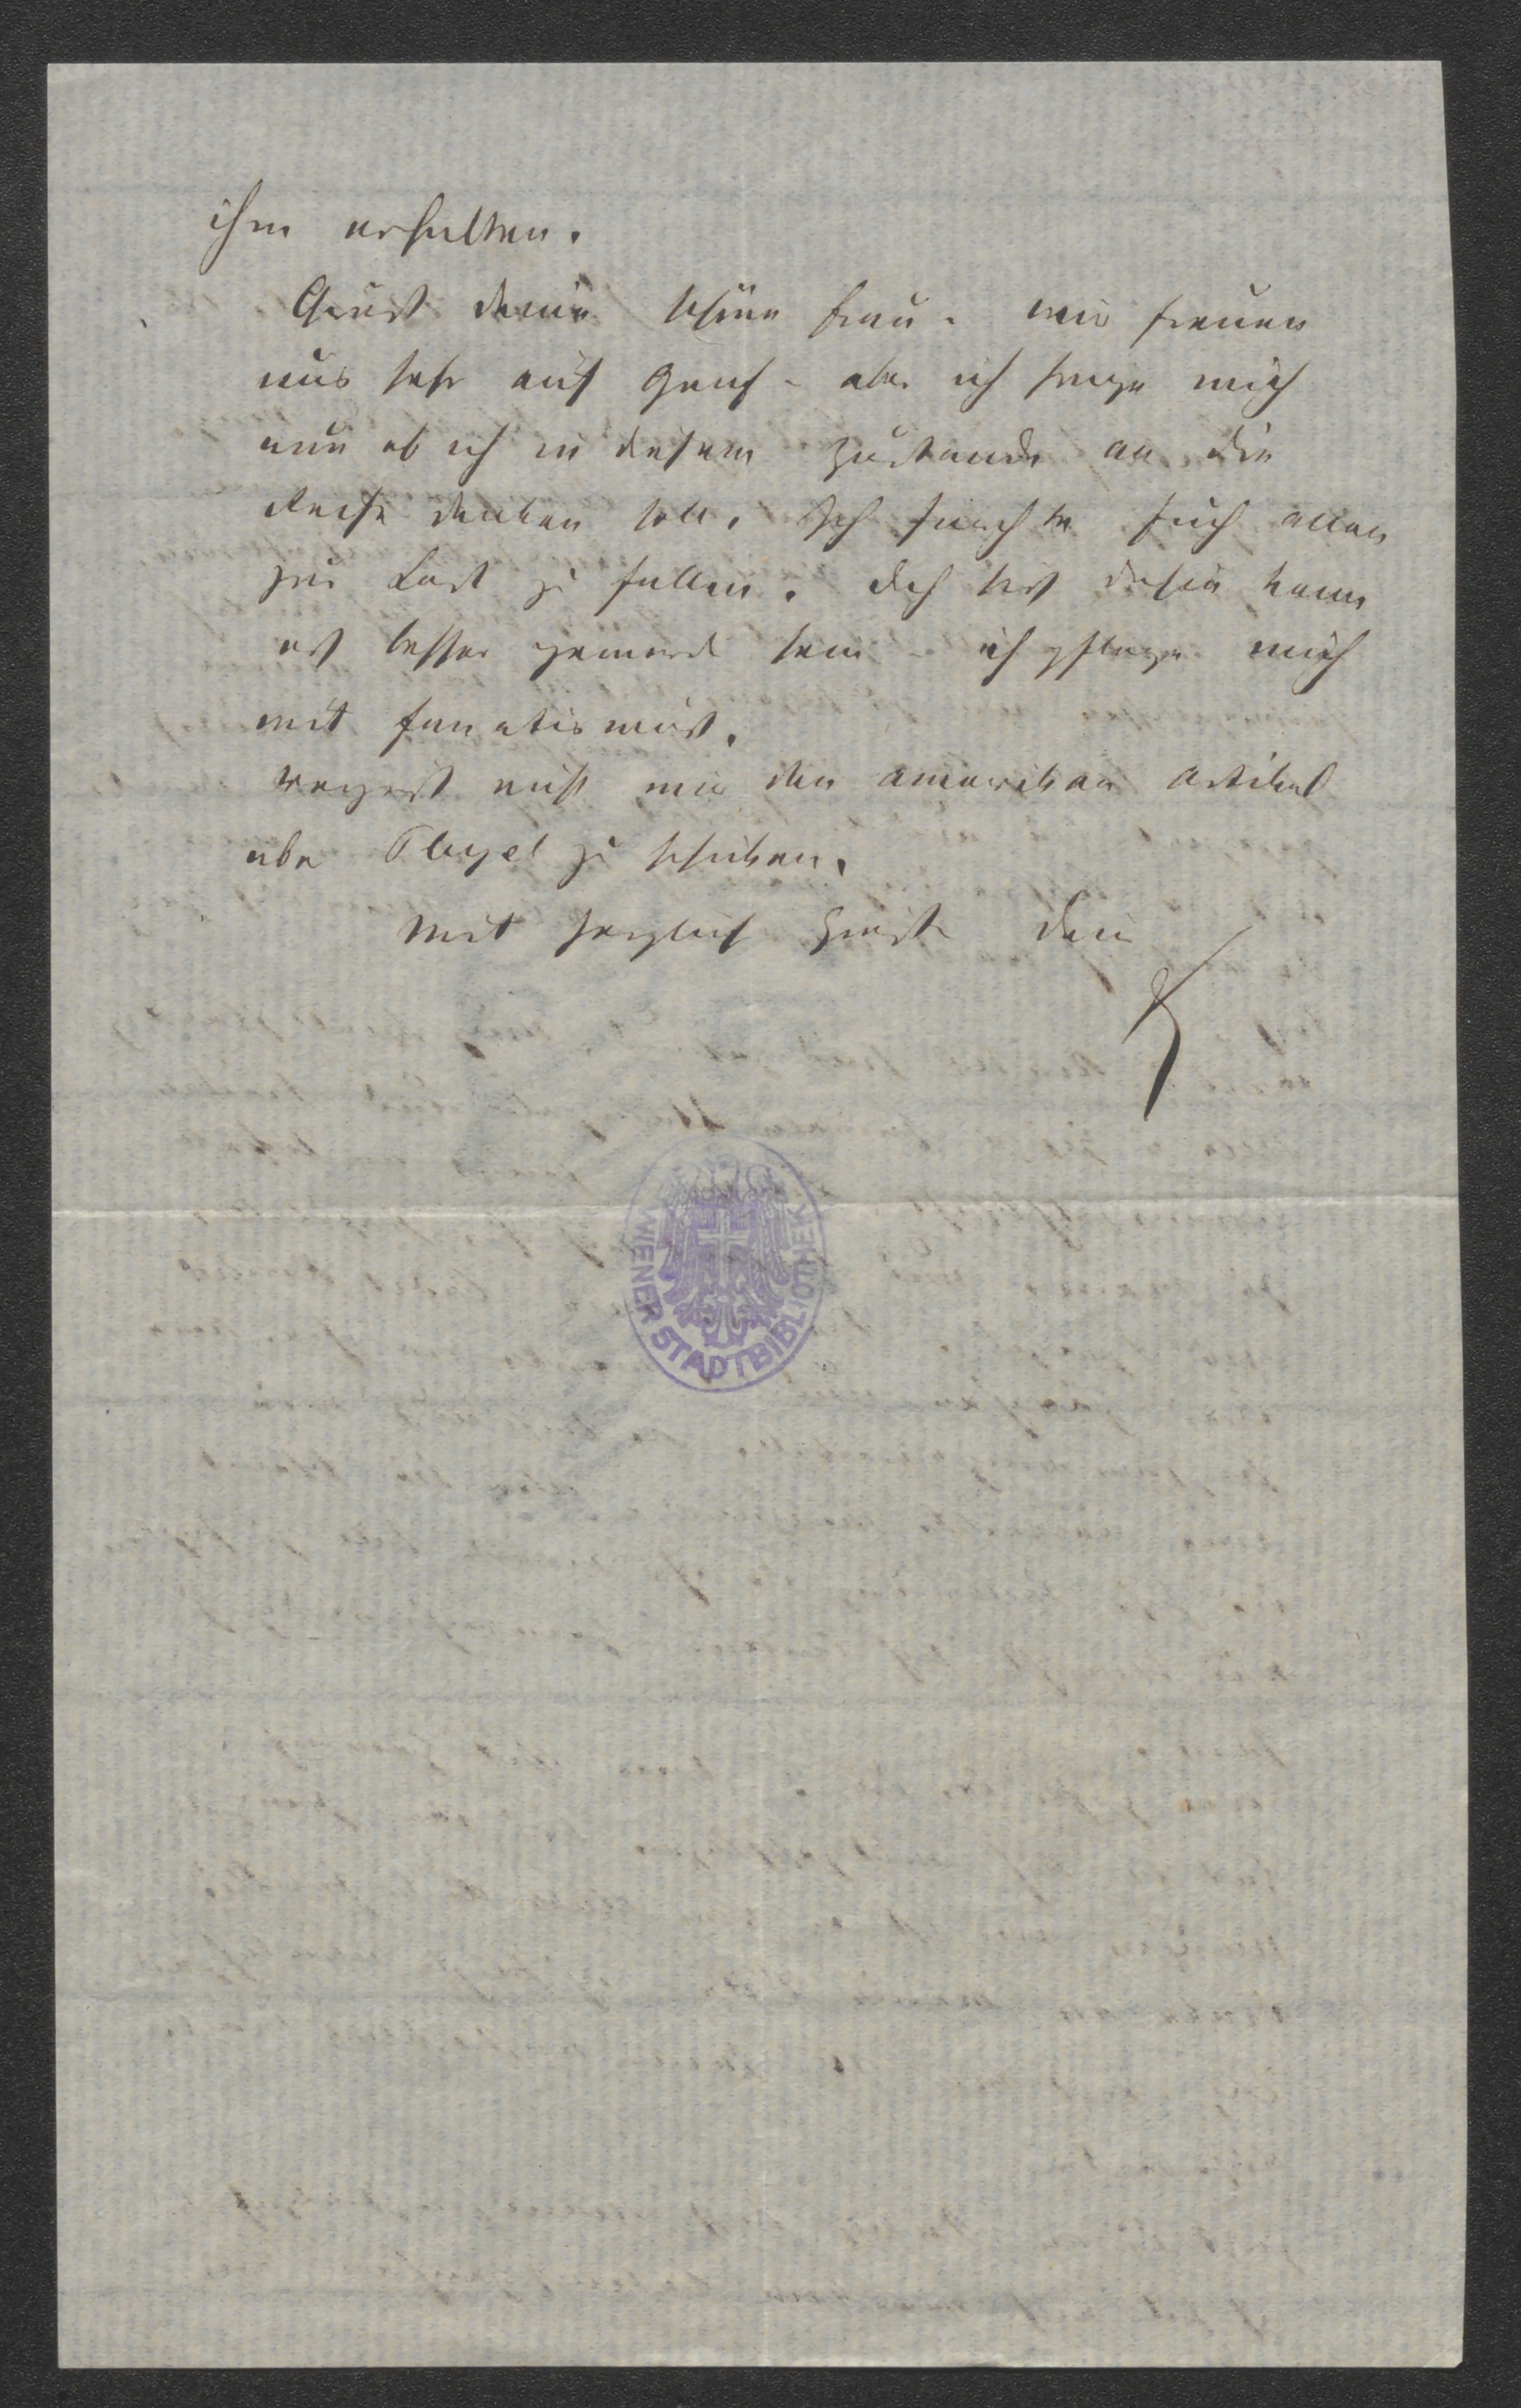 ihm erhalten.
Grüß deine schöne Frau. Wir freuen
uns sehr auf Genf – aber ich frage mich
nun ob ich in diesem Zustande an die
Reise denken soll. Ich fürchte Euch allen
zur Last zu fallen. Doch bis dahin kann
es besser geword sein – ich pflege mich
mit Fanatismus.
Vergeß nicht mir den amerikan Artikel
über Pleyel zu schicken.
Mit herzlich Grüße dein
K
WIENER STADTBIBLIOTHEK